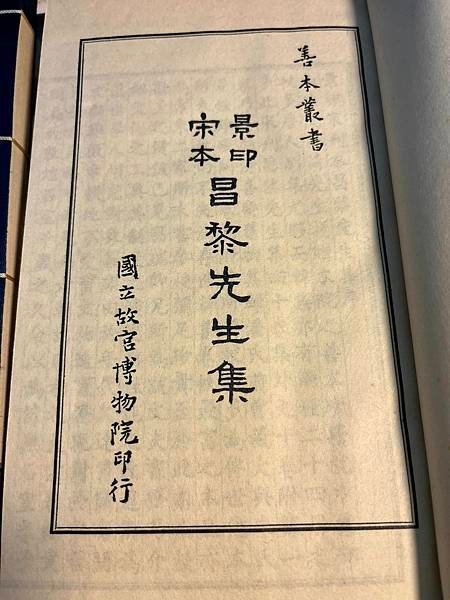 善本叢書
景印
宋本
昌黎先生集
國立故宮博物院印行